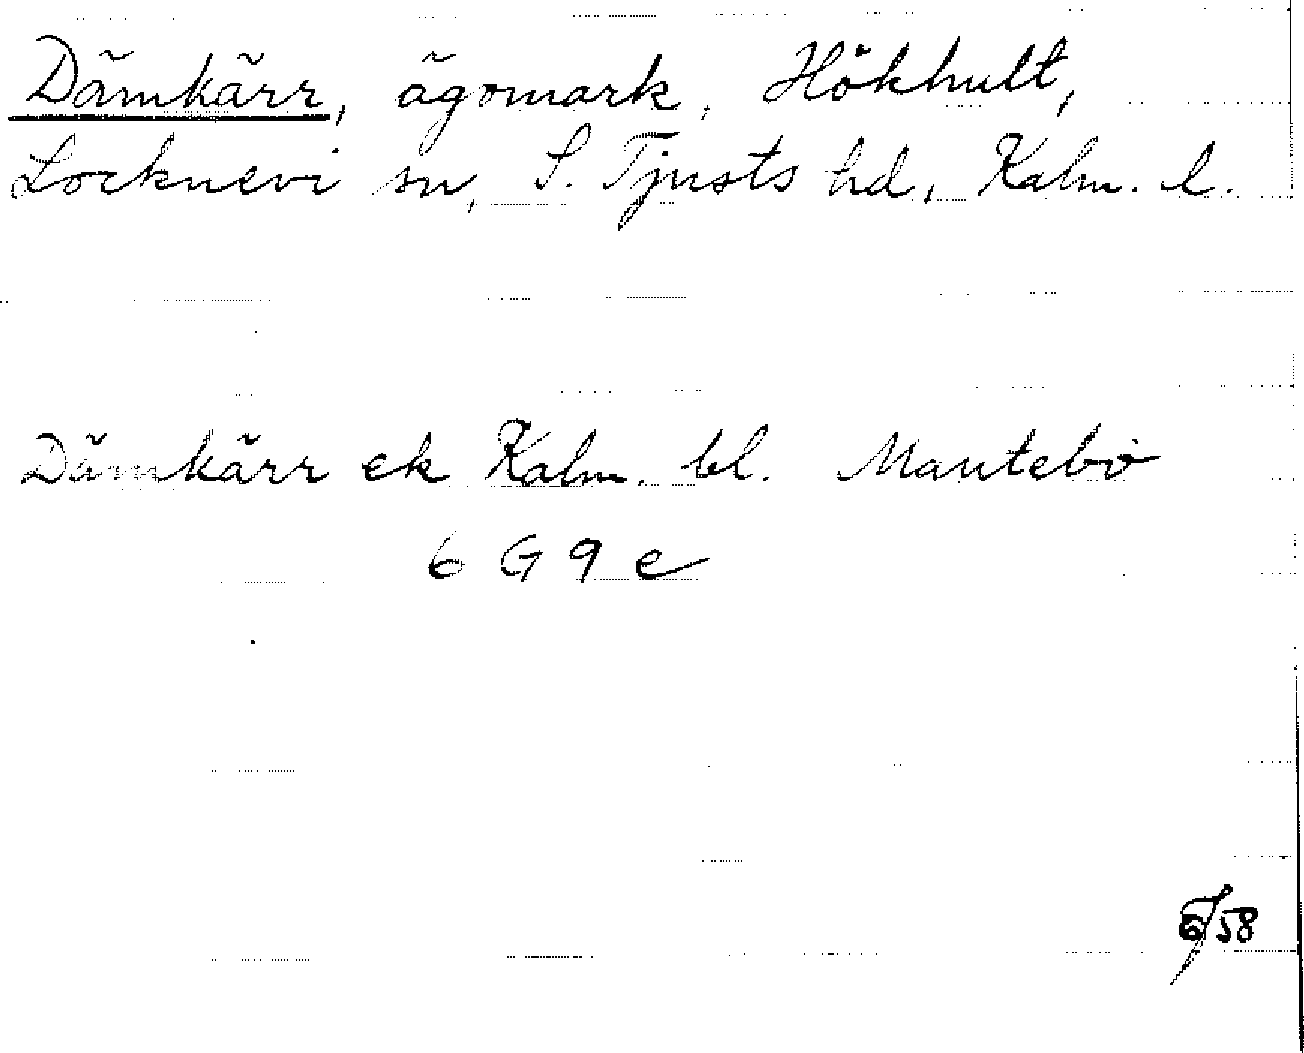 Dämkärr, ägomark, Hökhult,
Locknevi sn, S. Tjusts hd, Kalm. l.
Dämkärr ek Kalm. bl. Mantebo
6 G 9 e
58